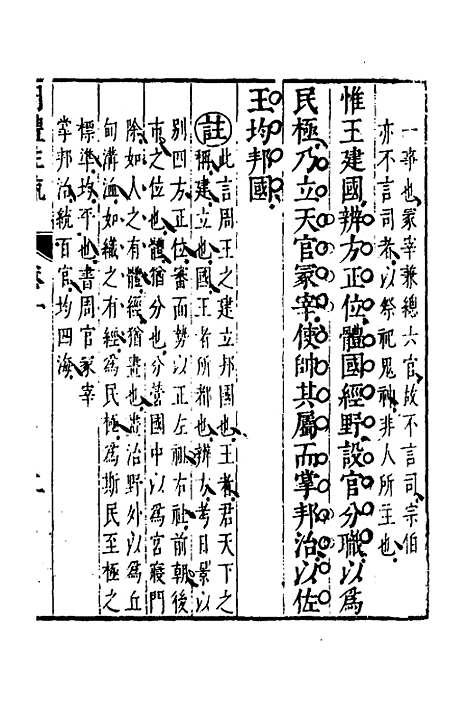 一事也冢宰兼總六官故不言司宗伯
亦不言司者以祭祀鬼神非人所主也
惟王建國辨方正位體國經野設官分職以爲
民極乃立天官冢宰使帥其屬而掌邦治以佐
王均邦國
註此言周王之建立邦國也王者君天下之
稱建立也國王者所都也辨方考日景以
別四方正位審面勢以正左祖右社前朝後
市之位也體猶分也分營國中以爲宮寢門
除如人之有體經猶畫也畫治野外以爲丘
甸溝洫如織之有經爲民極爲斯民至極之
標準均平也書周官冢宰
掌邦治統百官均四海
周禮註疏
卷一